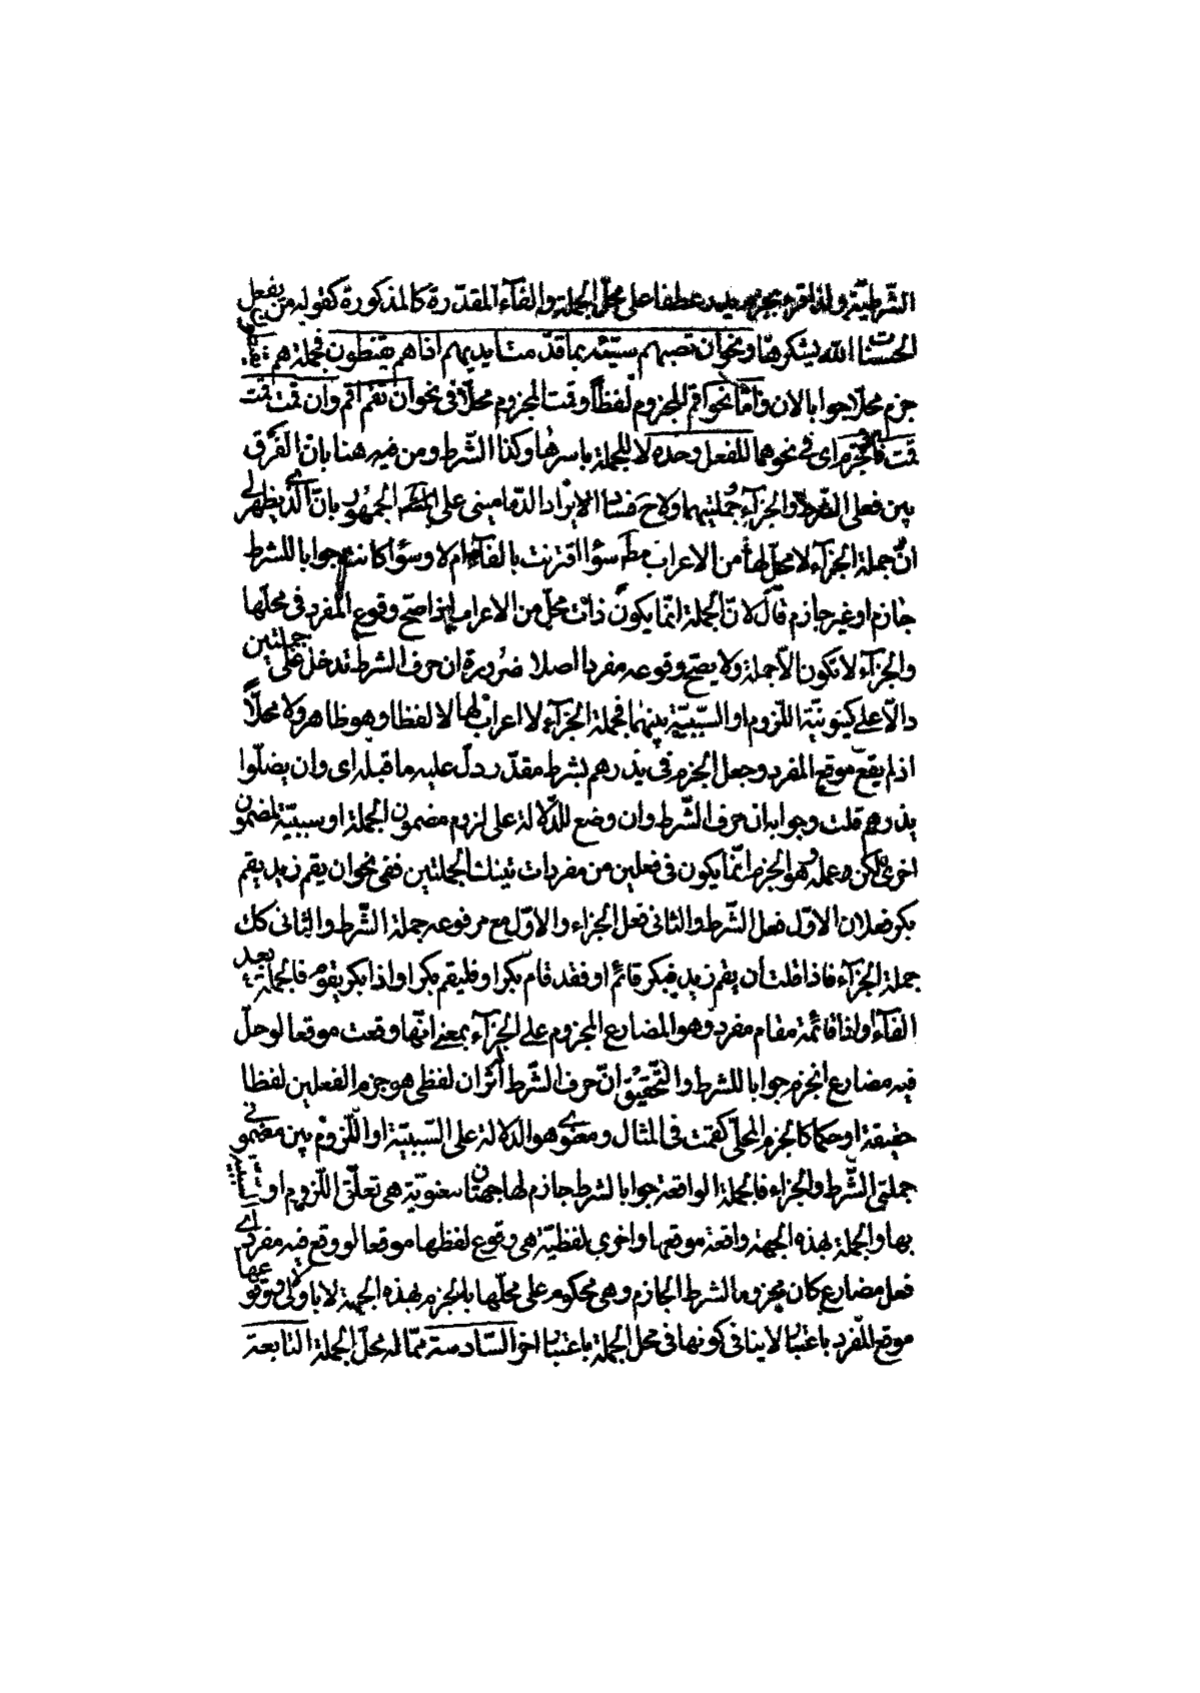 الشّرطيّة ولذا قرء بجزم يذرهم عطفا على محلّ الجملة والفآء المقدّرة كالمذكورة كقوله من يفعل
الحسنات اللّه يشكرها ونحو ان تصبهم سيّئة بما قدّمت ايديهم اذا هم يقنطون فجملة هم يقنطون فى محلّ
جزم محلّا جوابا لان وامّا نحو اقم المجزوم لفظاً وقمت المجزوم محلّا فى نحو ان تقم اقم وان قمت
قمت فالجزم اى فى نحوهما للفعل وحده لا للجملة باسرها وكذا الشّرط ومن فيه هنا بان الفرق
بين فعلى الشّرط والجزآء وجملتيهما ولاح فساد الايراد الدّمامينى على الجمهور بانّ الّذى يظهر لى
انّ جملة الجزآء لا محلّ لها من الاعراب مط سوآء اقترنت بالفآء ام لا وسوآء كانت جوابا للشرط
جازم او غير جازم قال لانّ الجملة انّما يكون ذات محلّ من الاعراب اذا صحّ وقوع المفرد فى محلّها
والجزآء لا تكون الّا جملة ولا يصحّ وقوعه مفردا اصلا ضرورة ان حرف الشرط تدخل على جملتين
دالّا على كينونيّة اللّزوم او السّببيّة بينهما فجملة الجزآء لا اعراب لها لا لفظا وهو ظاهر ولا محلّاً
اذ لم يقع موقع المفرد وجعل الجزم فى يذرهم بشرط مقدّر دلّ عليه ما قبله اى وان يضلّوا
يذرهم قلت وجوابه ان حرف الشّرط وان وضع للدّلالة على لزوم مضمون الجملة او سببيّة لمضمون
اخرى لكن عمله وهو الجزم انّما يكون فى فعلين من مفردات تينك الجملتين ففى نحو ان يقم زيد يقم
بكر فعلان الاوّل فعل الشّرط والثانى فعل الجزاء والاوّل مع مرفوعه جملة الشّرط والثانى كك
جملة الجزآء فاذا قلت أن يقم زيد فبكر قائم او فقد قام بكر او فليقم بكر او اذا بكر يقوم فالجملة بعد
الفآء واذا قائمة مقام مفرد وهو المضارع المجزوم على الجزآء بمعنى انّها وقعت موقعا لو حلّ
فيه مضارع انجزم جوابا للشرط والتّحقيق انّ حرف الشّرط أثران لفظى هو جزم الفعلين لفظا
حقيقة او حكما كالجزم المحلّى كقمت فى المثال ومعنوى هو الدّلالة على السّببيّة او اللّزوم بين مضمونى
جملتى الشّرط والجزاء فالجملة الواقعة جوابا لشرط جازم لها جهتان معنويّة هى تعلّق اللّزوم او السّببيّة
بها والجملة بهذه الجهة واقعة موقعها واخرى لفظيّة هى وقوع لفظها موقعا لو وقع فيه مفرد اى
فعل مضارع كان مجزوما لشرط الجازم وهى محكوم على محلّها بالجزم بهذه الجهة لا بالاولى فوقوعها
موقع المفرد باعتبار لا ينافى كونها فى محل الجملة باعتبار اخر السّادسة ممّا له محلّ الجملة التابعة